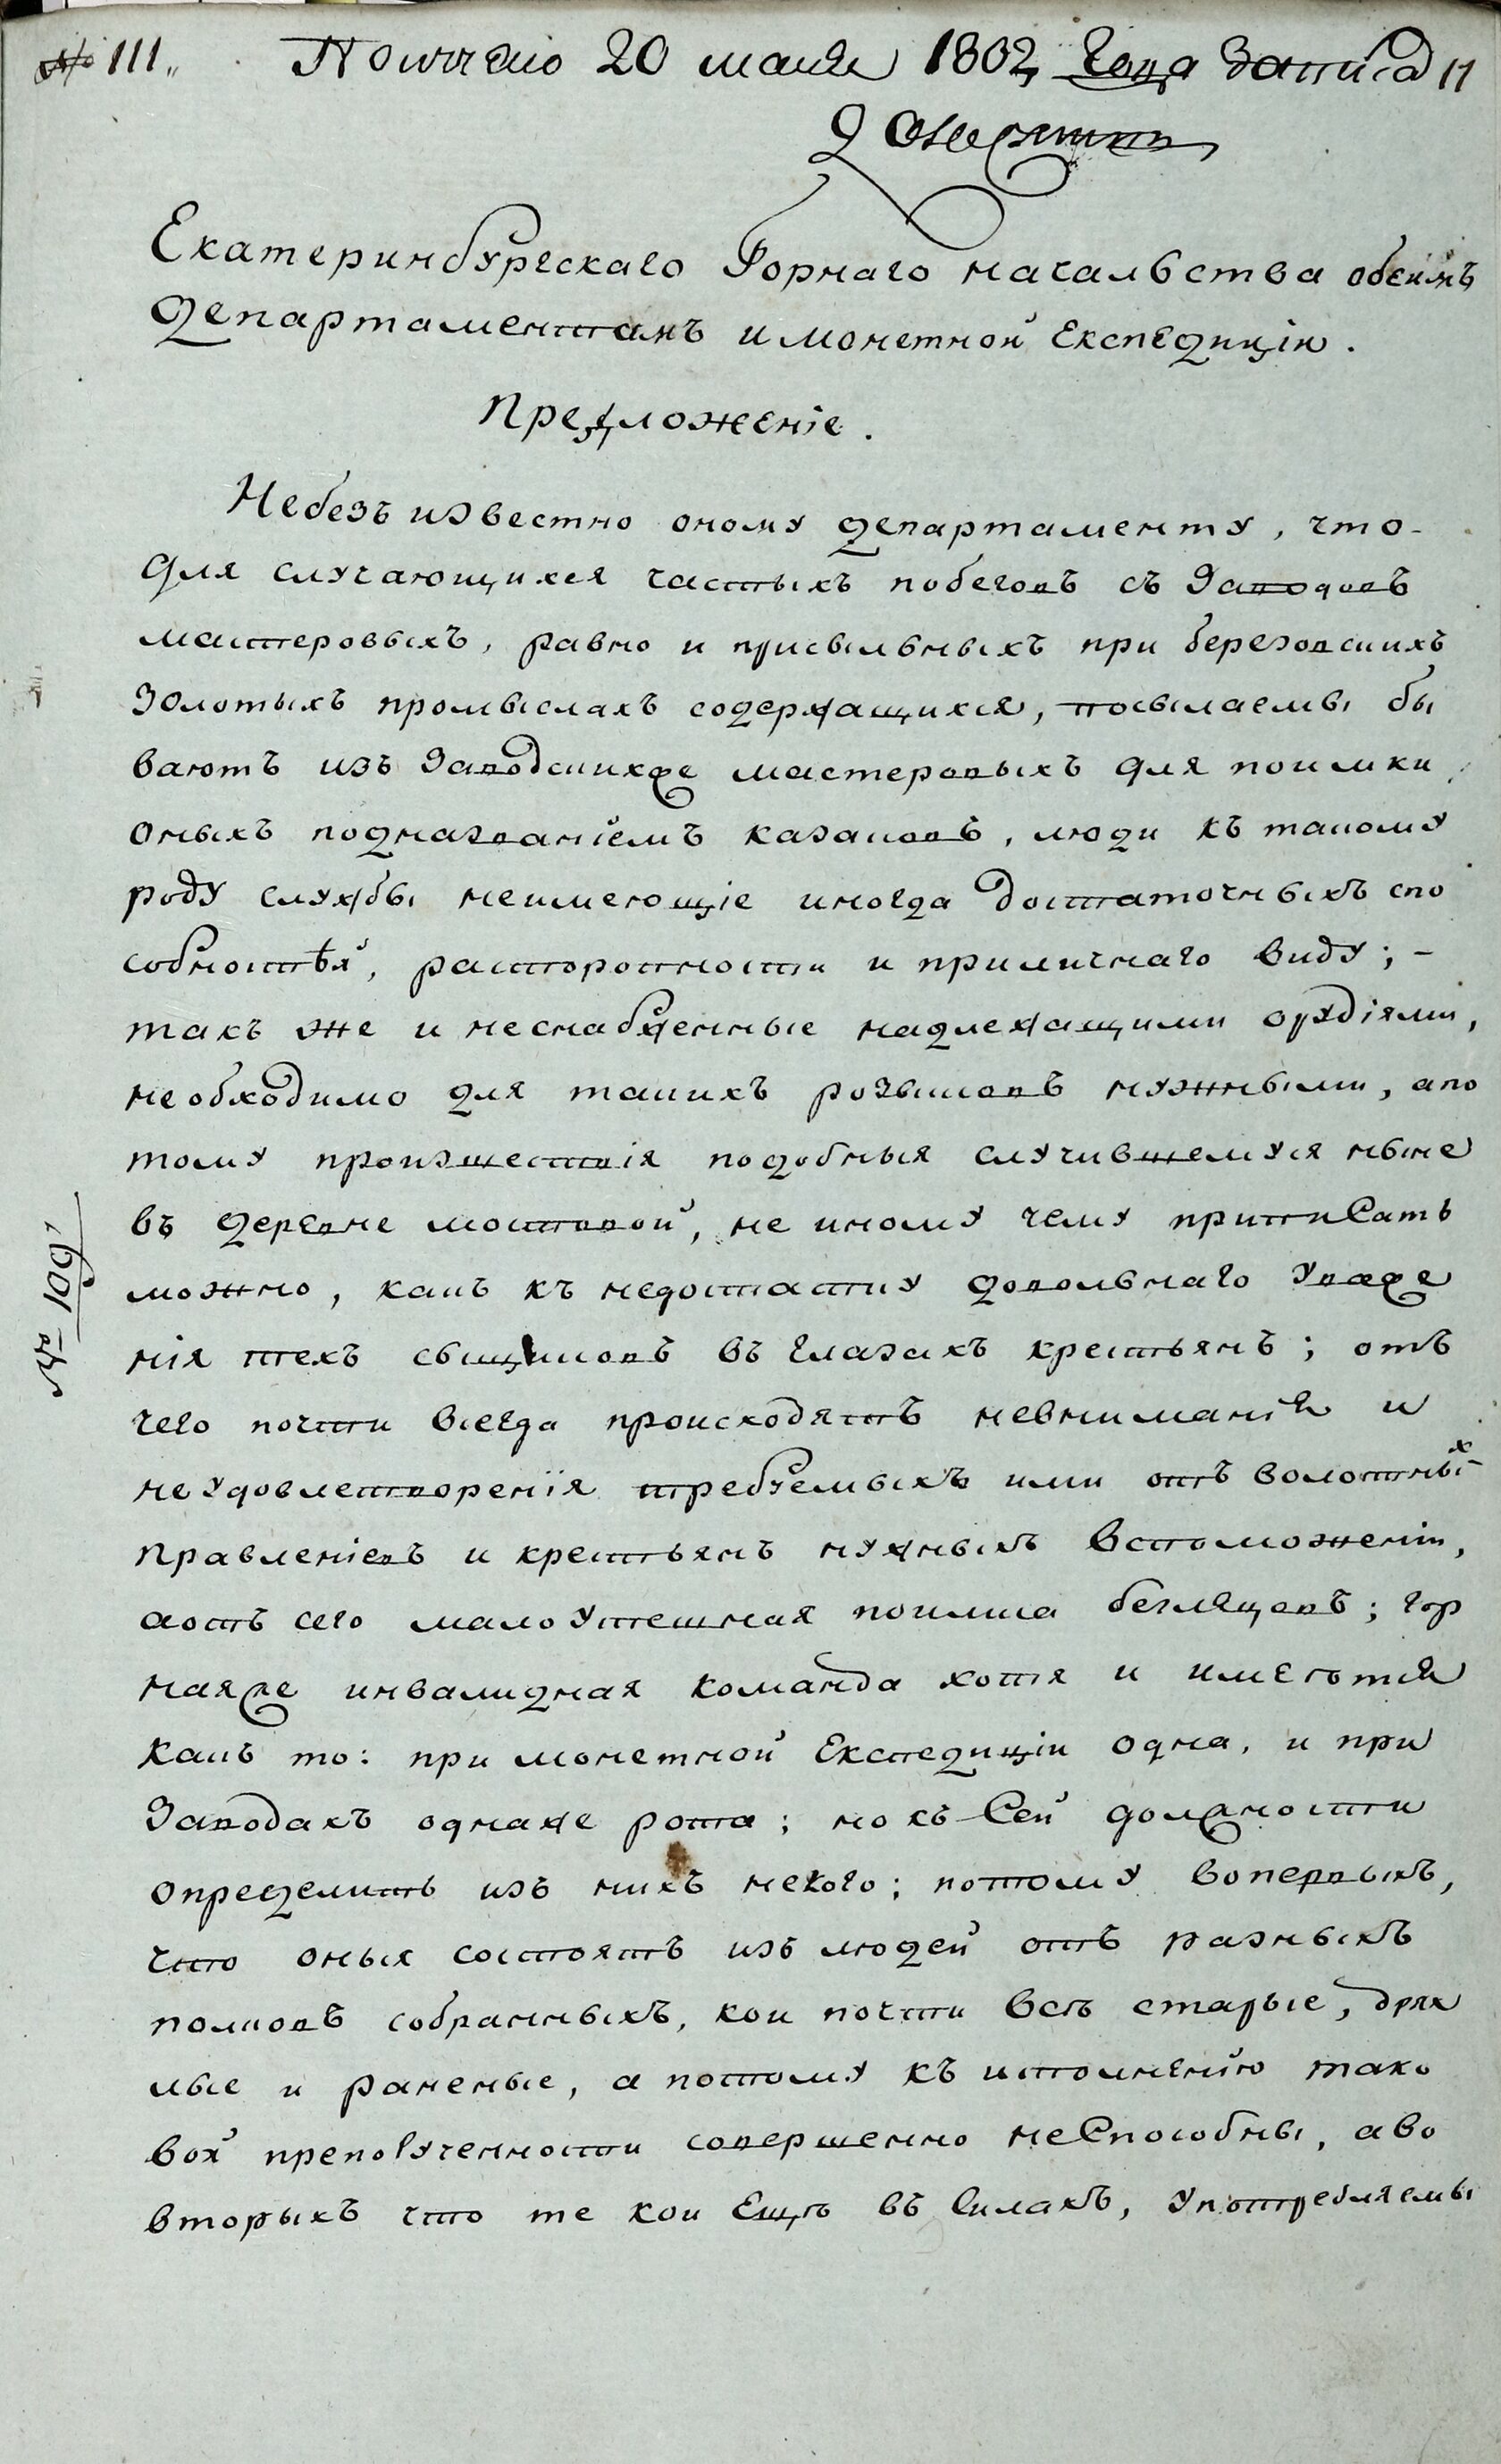 № 111. Получено 20 маия 1802 года Записа 11
Екатеринбургскаго Горнаго начальства обеимъ
Департаментамъ и монетной Експедиціи.
Предложеніе.
Небезъ известно оному департаменту, что-
для случающихся частыхъ побеговъ съ Заводовъ
мастеровыхъ, равно и присыльныхъ при березовскихъ
Золотыхъ промыслахъ содержащихся, посылаемы бы
ваютъ изъ Заводскихже мастеровыхъ для поимки
оныхъ подназваніемъ казаковъ, люди къ такому
роду службы неимеющіе иногда достаточныхъ спо
собностей, расторопности и приличнаго виду; -
такъ же и неснабженные надлежащими орудіями,
необходимо для такихъ розысковъ нужными, апо
тому произшествія подобныя случившемуся ныне
въ деревне мостовой, не иному чему приписать
можно, какъ къ недостатку довольнаго Уваже
нія техъ сыщиковъ въ глазахъ крестьянъ; отъ
чего почти всегда происходятъ невниманіе и
неудовлетворенія требуемыхъ ими отъ волостных
правленіевъ и крестьянъ нужныхъ вспоможеній,
аотъ сего малоуспешная поимка беглецовъ; гор
наяже инвалидная команда хотя и имеется
какъ то: при монетной Експедиціи одна, и при
Заводахъ однаже рота; но къ Сей должности
определить изъ нихъ некого; потому вопервыхъ,
что оныя состоятъ изъ людей отъ разныхъ
полковъ собранныхъ, кои почти все старые, дрях
лые и раненые, а потому къ исполненію тако
вой препорученности совершенно неСпособны, аво
вторыхъ что те кои Еще въ силахъ, Употребляемы
№ 109